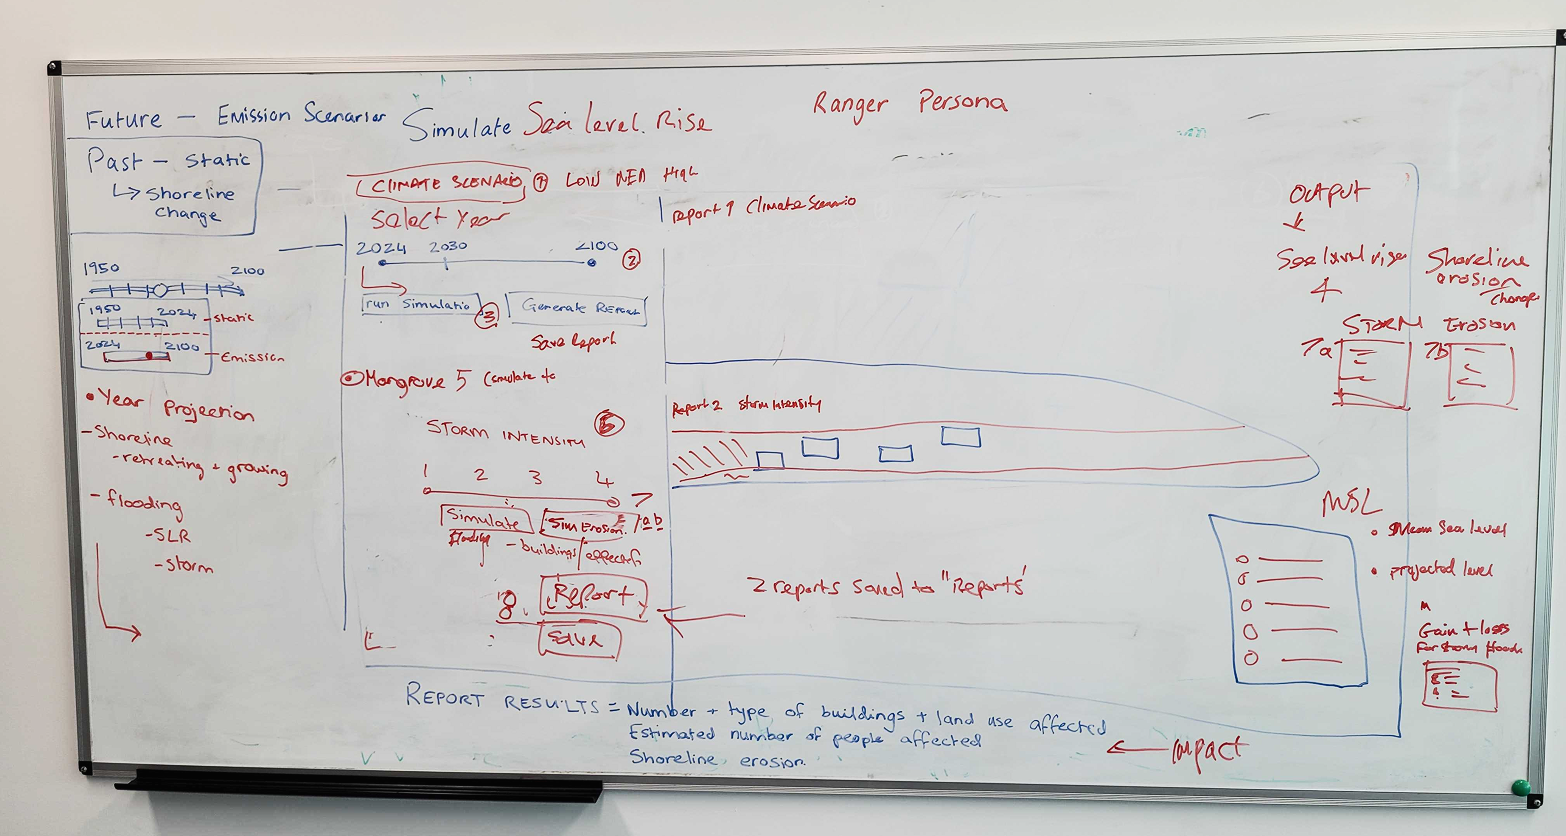 Future - Emission Scenarios
Simulate Sea level Rise
Ranger Persona
Past - Static
↳ Shoreline
Change
1950 2100
1950 2024
static
2024 2100
Emission
• Year Projection
- Shoreline
- retreating + growing
- flooding
- SLR
- Storm
CLIMATE SCENARIO 1 LOW MED High
Select Year
2024 2030 2100 2
run Simulatio 3 Generate Report
Save Report
Mangrove 5 (simulate
STORM INTENSITY
1 2 3 4
7
Simulate Sim Erosion a b
flooding - buildings effected
8. Report
Save
Report 1 Climate Scenario
Report 2 Storm Intensity
2 reports saved to "Reports'
OUTPUT
Sea level rise
Shoreline
erosion
Change
STORM Erosion
7a 7b
MSL
• Mean Sea level
• projected level
Gain + loss
For Storm flood
REPORT RESULTS = Number + type of buildings + land use affected
Estimated number of people affected
Shoreline erosion
← impact